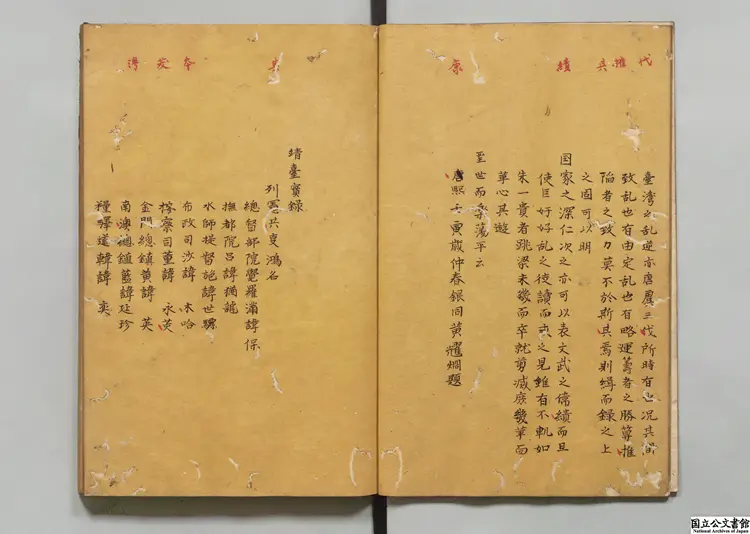 代 惟 具 績 康
臺灣之乱逆亦唐虞三代所時有也况其間
致乱也有由定乱也有略運籌者之勝筭惟
陷者之致力莫不於斯具焉則緝而録之上
之固可以明
国家之深仁次之亦可以表文武之偉績而且
使臣好好乱之徒讀而 之見雖有不軌如
朱一貴者跳梁未幾而卒就剪滅庶幾革面
革心其遊
至世而奏蕩平云
康熙壬寅歲仲春銀同黄耀炯題
本 得
靖臺實録
列憲共 鴻名
總督部院覺羅滿諱保
撫都院吕諱猶龍
水師提督施諱世驃
布政司沙諱 木哈
按察司董諱 永
金門總鎮黄諱 英
南澳總鎮藍諱廷珍
糧驛道韓諱 奕
国立公文書館
National Archives of Japan